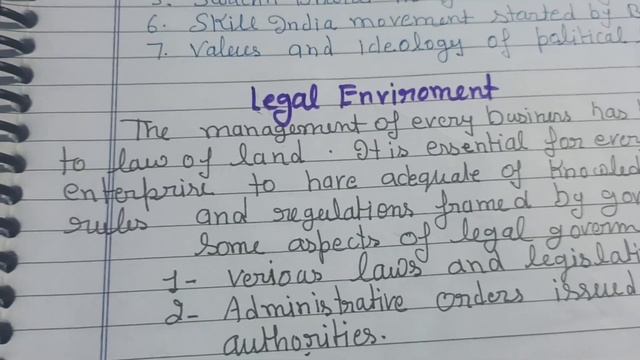 6. Skill India movement started by
7. Values and ideology of political
Legal Envrinoment
The management of every business has
to flaw of land. It is essential for ever
enterprise to have adequate of Knowled
rules and regulations framed by gov
Some aspects of legal governm
1- verious laws and legislati
2- Administrative orders issued
authorities.